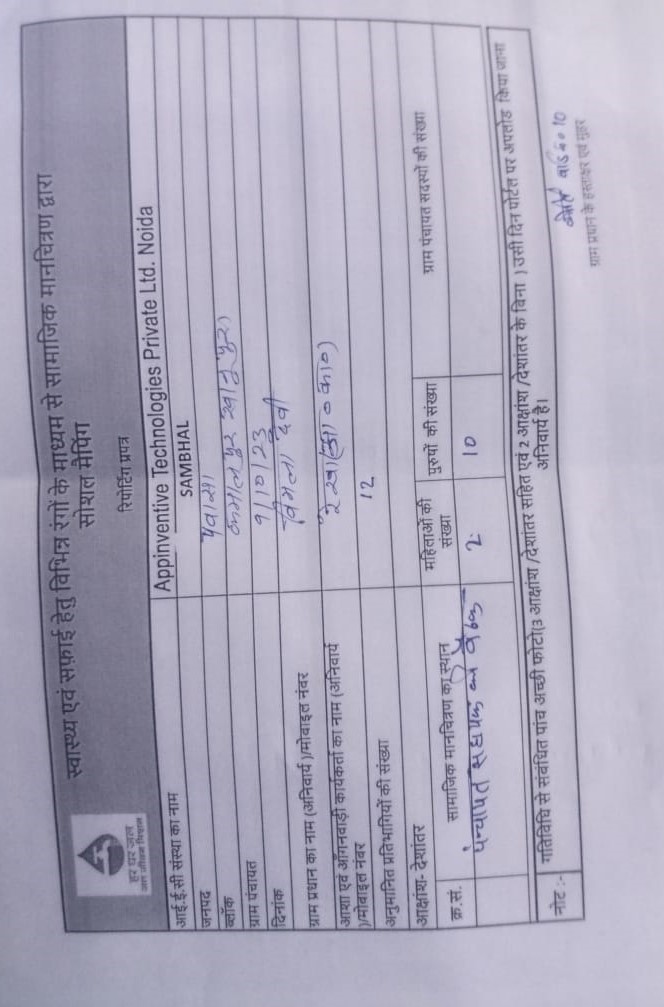 हर घर जल
जल जीवन मिशन
स्वास्थ्य एवं सफ़ाई हेतु विभिन्न रंगों के माध्यम से सामाजिक मानचित्रण द्वारा
सोशल मैपिंग
रिपोर्टिंग प्रपत्र
आई.ई.सी संस्था का नाम Appinventive Technologies Private Ltd. Noida
जनपद SAMBHAL
ब्लॉक पवासा
ग्राम पंचायत कमालपुर
दिनांक 9/10/23
ग्राम प्रधान का नाम (अनिवार्य )/मोबाइल नंवर विमला देवी
आशा एवं आँगनवाड़ी कार्यकर्ता का नाम (अनिवार्य
)/मोवाइल नंवर रेखा
अनुमानित प्रतिभागियों की संख्या 12
आक्षांश- देशांतर
क्र.सं. सामाजिक मानचित्रण का स्थान महिलाओं की संख्या पुरुषों की संख्या ग्राम पंचायत सदस्यों की संख्या
पंन्चायत 2 10
नोट :- गतिविधि से संबंधित पांच अच्छी फोटो(3 आक्षांश /देशांतर सहित एवं 2 आक्षांश /देशांतर के विना ) उसी दिन पोर्टल पर अपलोड किया जाना
अनिवार्य है।
वार्ड न० 10
ग्राम प्रधान के हस्ताक्षर एवं मुहर